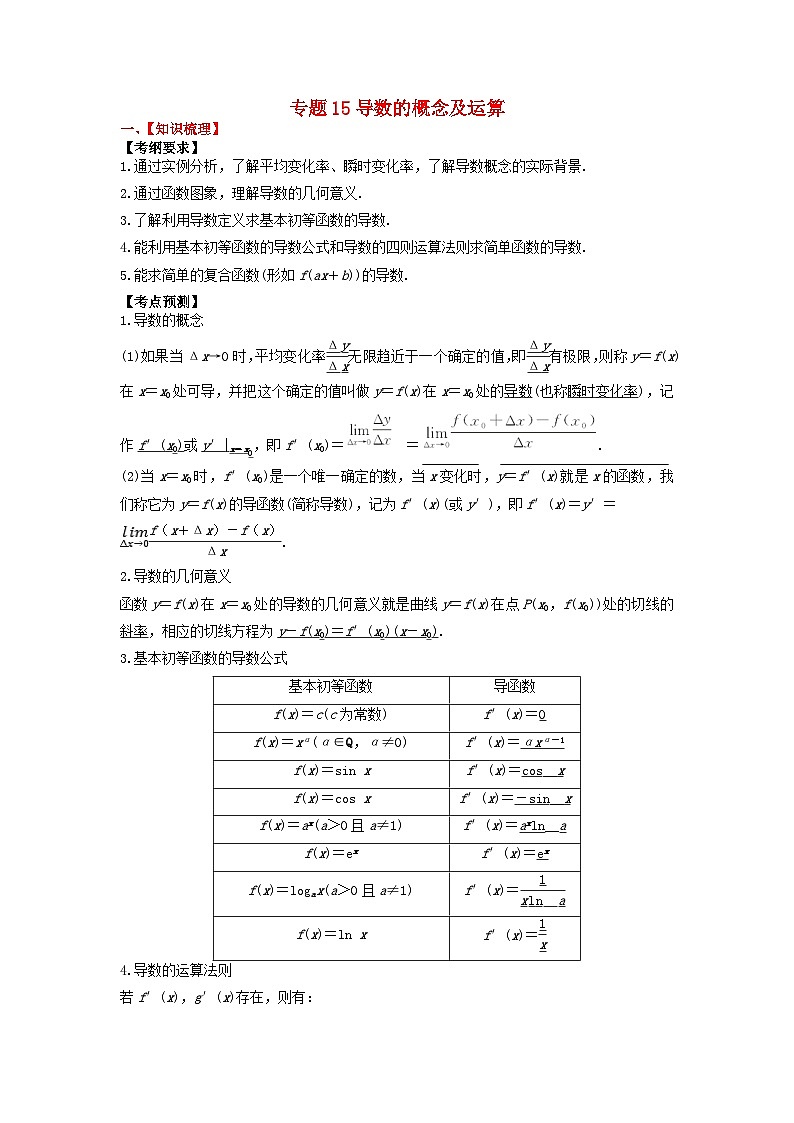 专题15导数的概念及运算
一、【知识梳理】
【考纲要求】
1.通过实例分析，了解平均变化率、瞬时变化率，了解导数概念的实际背景.
2.通过函数图象，理解导数的几何意义.
3.了解利用导数定义求基本初等函数的导数.
4.能利用基本初等函数的导数公式和导数的四则运算法则求简单函数的导数.
5.能求简单的复合函数(形如f(ax＋b))的导数.
【考点预测】
1.导数的概念
(1)如果当Δx→0时,平均变化率Δy/Δx无限趋近于一个确定的值,即Δy/Δx有极限,则称y＝f(x)
在x＝x₀处可导，并把这个确定的值叫做y＝f(x)在x＝x₀处的导数(也称瞬时变化率)，记
作f′(x₀)或y′|x＝x₀，即f′(x₀)＝lim Δx→0 Δy/Δx＝lim Δx→0 (f(x₀＋Δx)－f(x₀))/Δx.
(2)当x＝x₀时，f′(x₀)是一个唯一确定的数，当x变化时，y＝f′(x)就是x的函数，我
们称它为y＝f(x)的导函数(简称导数)，记为f′(x)(或y′)，即f′(x)＝y′＝
lim Δx→0 (f（x＋Δx）－f（x）)/Δx.
2.导数的几何意义
函数y＝f(x)在x＝x₀处的导数的几何意义就是曲线y＝f(x)在点P(x₀，f(x₀))处的切线的
斜率，相应的切线方程为y－f(x₀)＝f′(x₀)(x－x₀).
3.基本初等函数的导数公式
基本初等函数 导函数
f(x)＝c(c为常数) f′(x)＝0
f(x)＝x^α(α∈Q，α≠0) f′(x)＝αx^(α－1)
f(x)＝sin x f′(x)＝cos__x
f(x)＝cos x f′(x)＝－sin__x
f(x)＝aˣ(a＞0且a≠1) f′(x)＝aˣln__a
f(x)＝eˣ f′(x)＝eˣ
f(x)＝logₐx(a＞0且a≠1) f′(x)＝1/(xln__a)
f(x)＝ln x f′(x)＝1/x
4.导数的运算法则
若f′(x)，g′(x)存在，则有：